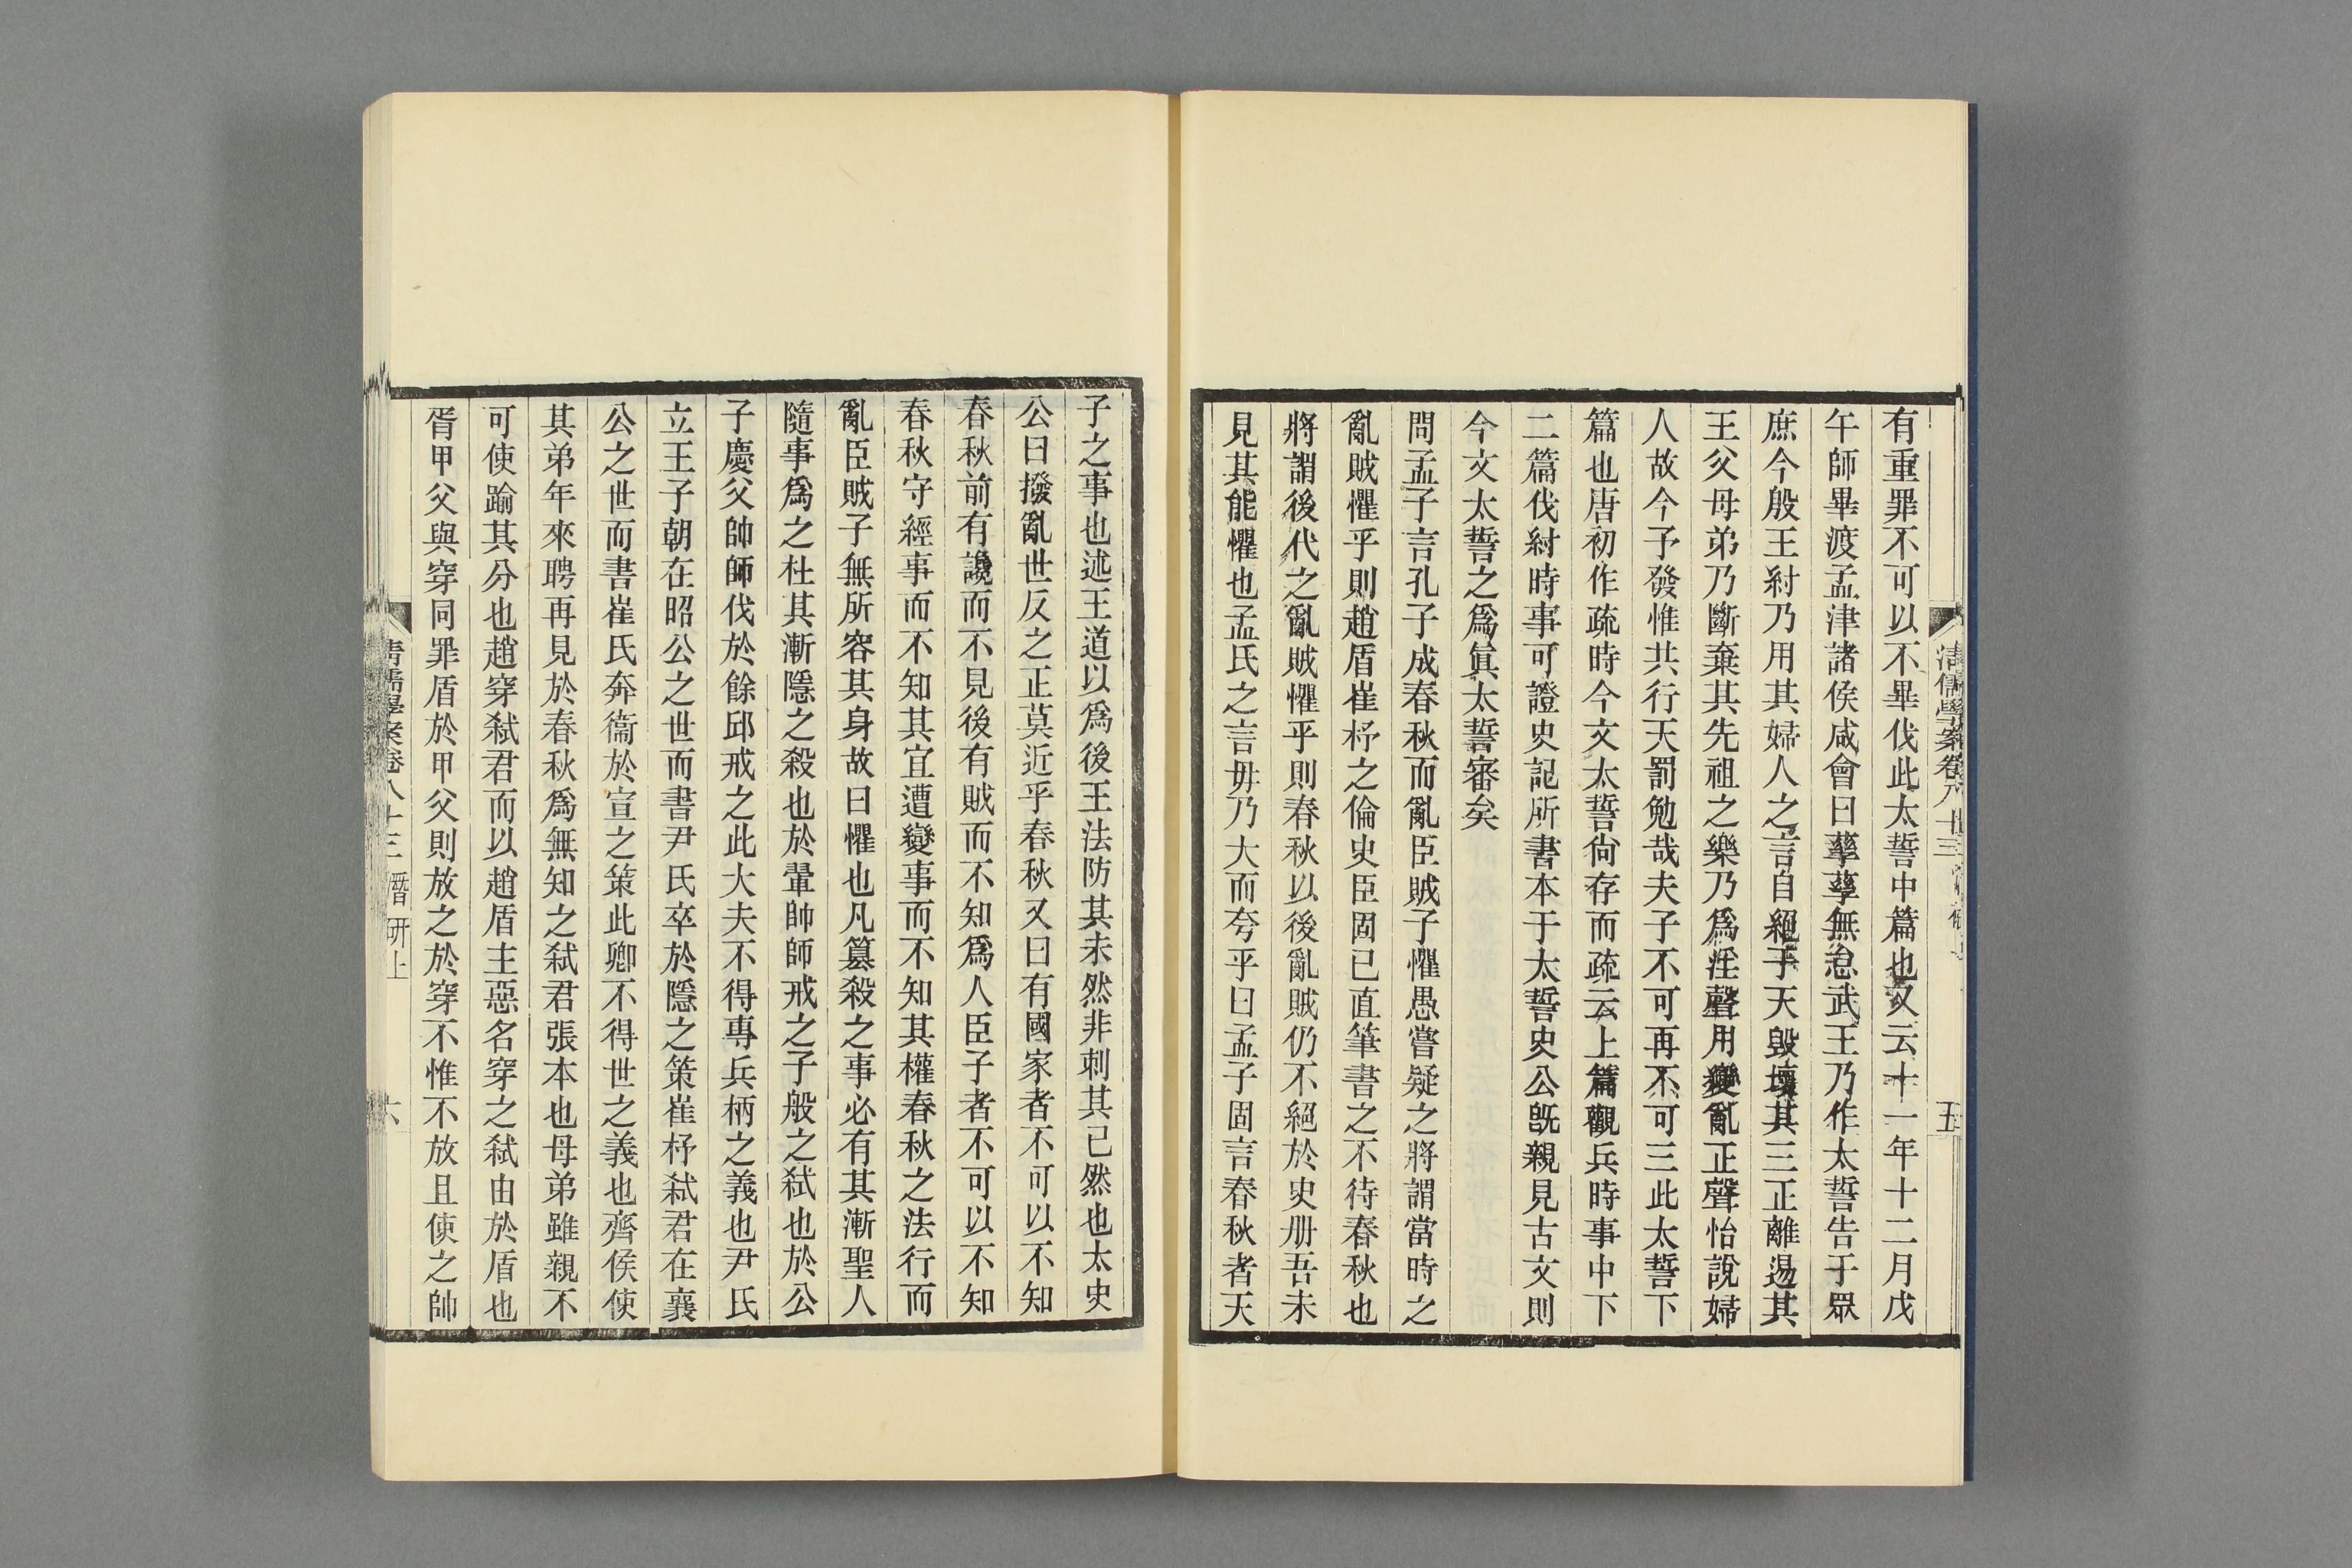 有重罪不可以不畢伐此太誓中篇也又云十一年十二月戊
午師畢渡孟津諸侯咸會曰孳孳無怠武王乃作太誓告于眾
庶今殷王紂乃用其婦人之言自絕于天毀壞其三正離逷其
王父母弟乃斷棄其先祖之樂乃爲淫聲用變亂正聲怡說婦
人故今予發惟共行天罰勉哉夫子不可再不可三此太誓下
篇也唐初作疏時今文太誓尙存而疏云上篇觀兵時事中下
二篇伐紂時事可證史記所書本于太誓史公旣親見古文則
今文太誓之爲眞太誓審矣
問孟子言孔子成春秋而亂臣賊子懼愚嘗疑之將謂當時之
亂賊懼乎則趙盾崔杼之倫史臣固已直筆書之不待春秋也
將謂後代之亂賊懼乎則春秋以後亂賊仍不絕於史册吾未
見其能懼也孟氏之言毋乃大而夸乎曰孟子固言春秋者天
清儒學案卷八十三
五
子之事也述王道以爲後王法防其未然非刺其已然也太史
公曰撥亂世反之正莫近乎春秋又曰有國家者不可以不知
春秋前有讒而不見後有賊而不知爲人臣子者不可以不知
春秋守經事而不知其宜遭變事而不知其權春秋之法行而
亂臣賊子無所容其身故曰懼也凡篡殺之事必有其漸聖人
隨事爲之杜其漸隱之殺也於翬帥師戒之子般之弑也於公
子慶父帥師伐於餘邱戒之此大夫不得專兵柄之義也尹氏
立王子朝在昭公之世而書尹氏卒於隱之策崔杼弑君在襄
公之世而書崔氏奔衞於宣之策此卿不得世之義也齊侯使
其弟年來聘再見於春秋爲無知之弑君張本也母弟雖親不
可使踰其分也趙穿弑君而以趙盾主惡名穿之弑由於盾也
胥甲父與穿同罪盾於甲父則放之於穿不惟不放且使之帥
清儒學案卷八十三 潛研上
六